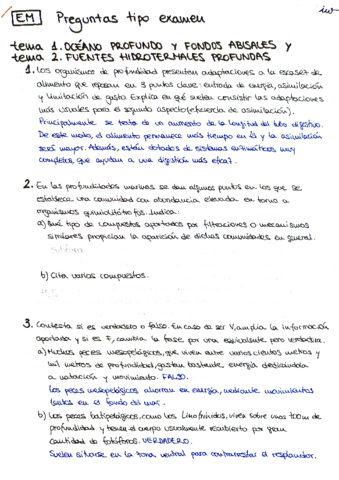 EM Preguntas tipo examen
tema 1. OCÉANO PROFUNDO Y FONDOS ABISALES y
tema 2. FUENTES HIDROTERMALES PROFUNDAS
1. Los organismos de profundidad presentan adaptaciones a la escasez de
alimento que reposan en 3 puntos clave: entrada de energía, asimilación
y limitación de gasto. Explica en qué suelen consistir las adaptaciones
más usuales para el segundo aspecto (eficiencia de asimilación).
Principalmente se trata de un aumento de la longitud del tubo digestivo.
De este modo, el alimento permanece más tiempo en él y la asimilación
será mayor. Además, están dotados de sistemas enzimáticos muy
completos, que ayudan a una digestión más eficaz.
2. En las profundidades marinas se dan algunos puntos en los que se
establece una comunidad con abundancia elevada en torno a
organismos quimiolitótrofos. Indica:
a) Qué tipo de compuestos aportados por filtraciones o mecanismos
similares propician la aparición de dichas comunidades en general.
b) Cita varios compuestos.
3. Contesta si es verdadero o falso. En caso de ser V, amplía la información
aportada y si es F, cambia la frase por una equivalente pero verdadera.
a) Muchos peces mesopelágicos, que viven entre varios cientos metros y
mil metros de profundidad, gastan bastante energía dedicándola
a natación y movimiento. FALSO.
Los peces mesopelágicos ahorran en energía, mediante movimientos
lentos en el fondo del mar.
b) Los peces batipelágicos, como los Linofrínidos, viven sobre unos 700m de
profundidad y tienen el cuerpo usualmente recubierto por gran
cantidad de fotóforos. VERDADERO.
Suelen situarse en la zona ventral para contrarrestar el resplandor.